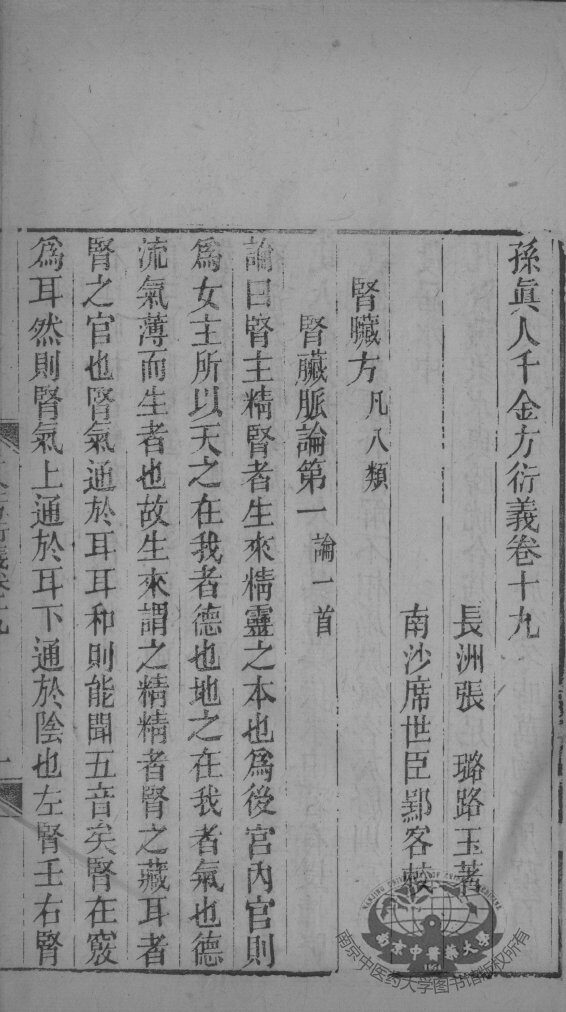 孫眞人千金方衍義卷十九
長洲張　璐路玉著
南沙席世臣鄴客校
腎臟方凡八類
腎臟脈論第一 論一首
論曰腎主精腎者生來精靈之本也爲後宮內官則
爲女主所以天之在我者德也地之在我者氣也德
流氣薄而生者也故生來謂之精精者腎之藏耳者
腎之官也腎氣通於耳耳和則能聞五音矣腎在竅
爲耳然則腎氣上通於耳下通於陰也左腎壬右腎
南京中醫藥大學
南京中医药大学图书馆版权所有